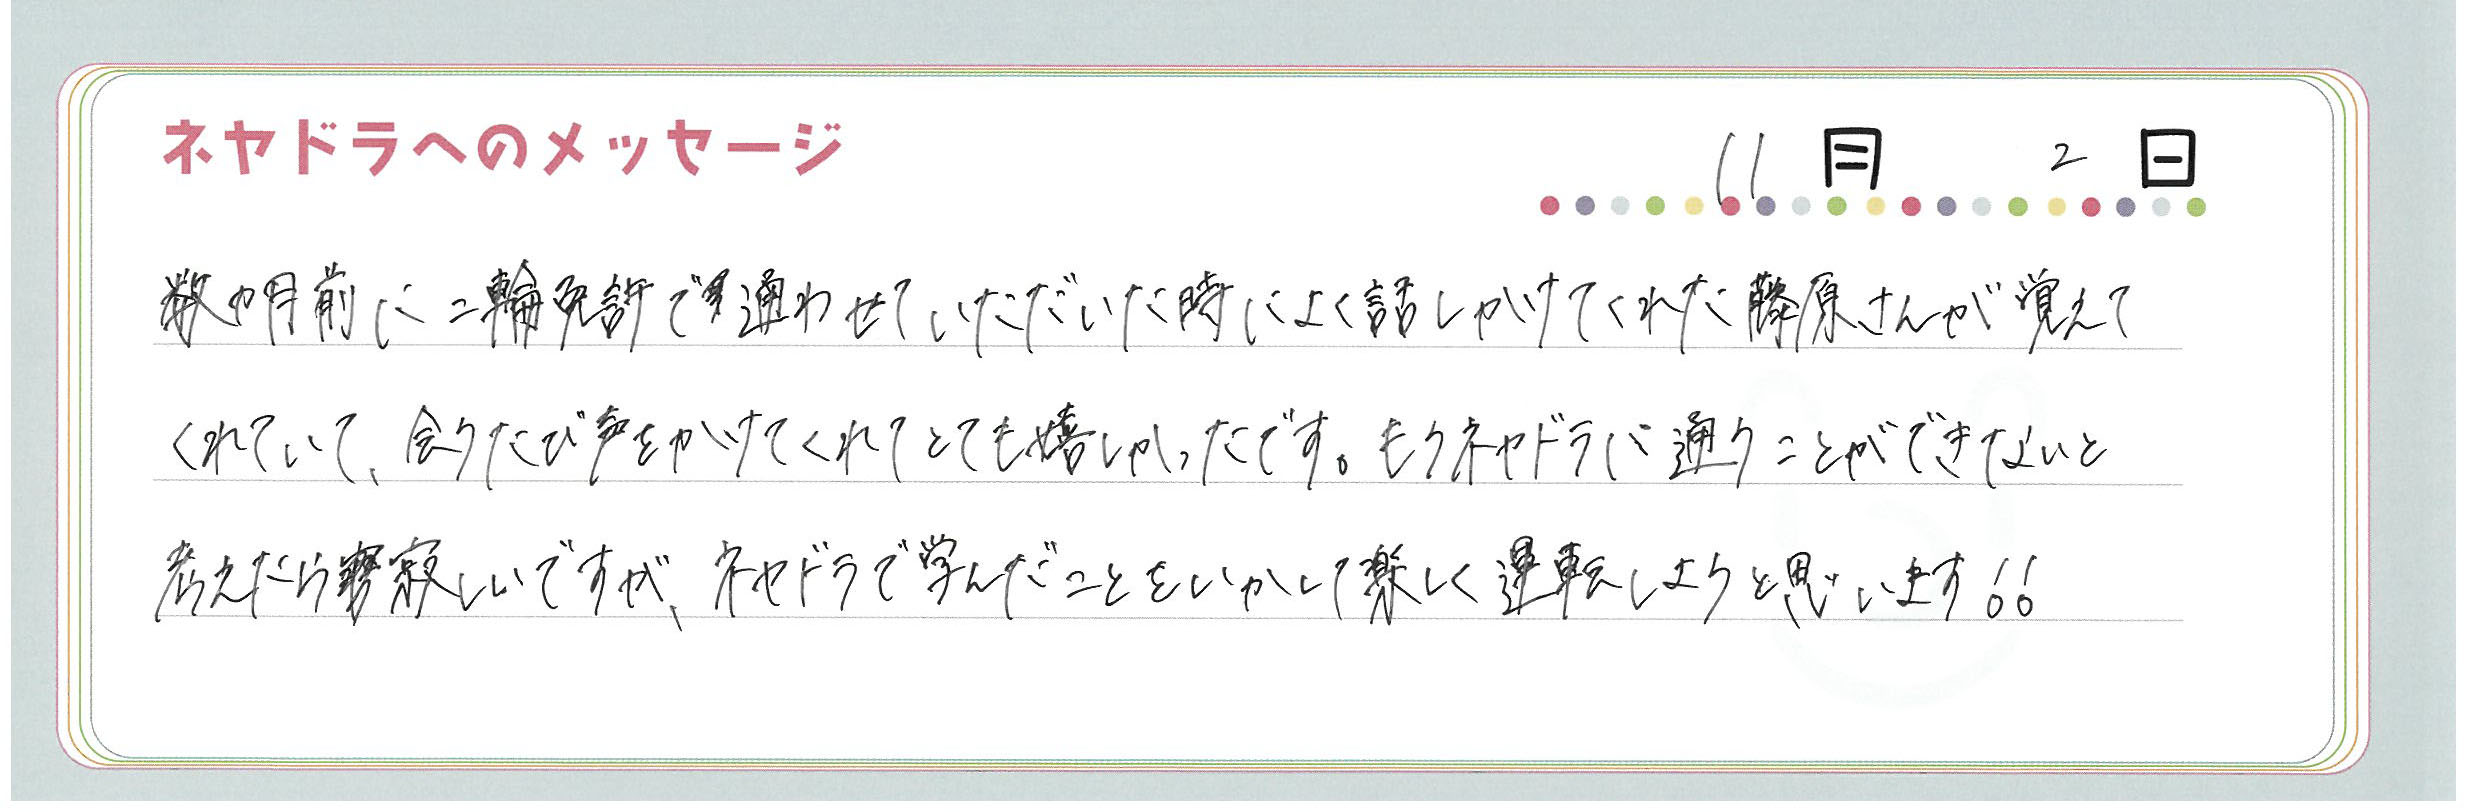 ネヤドラへのメッセージ
11月 2日
数か月前に二輪免許で通わせていただいた時によく話しかけてくれた藤原さんが覚えて
くれていて、会うたび声をかけてくれてとても嬉しかったです。もうネヤドラに通うことができないと
考えたら寂しいですが、ネヤドラで学んだことをいかして楽しく運転しようと思います!!